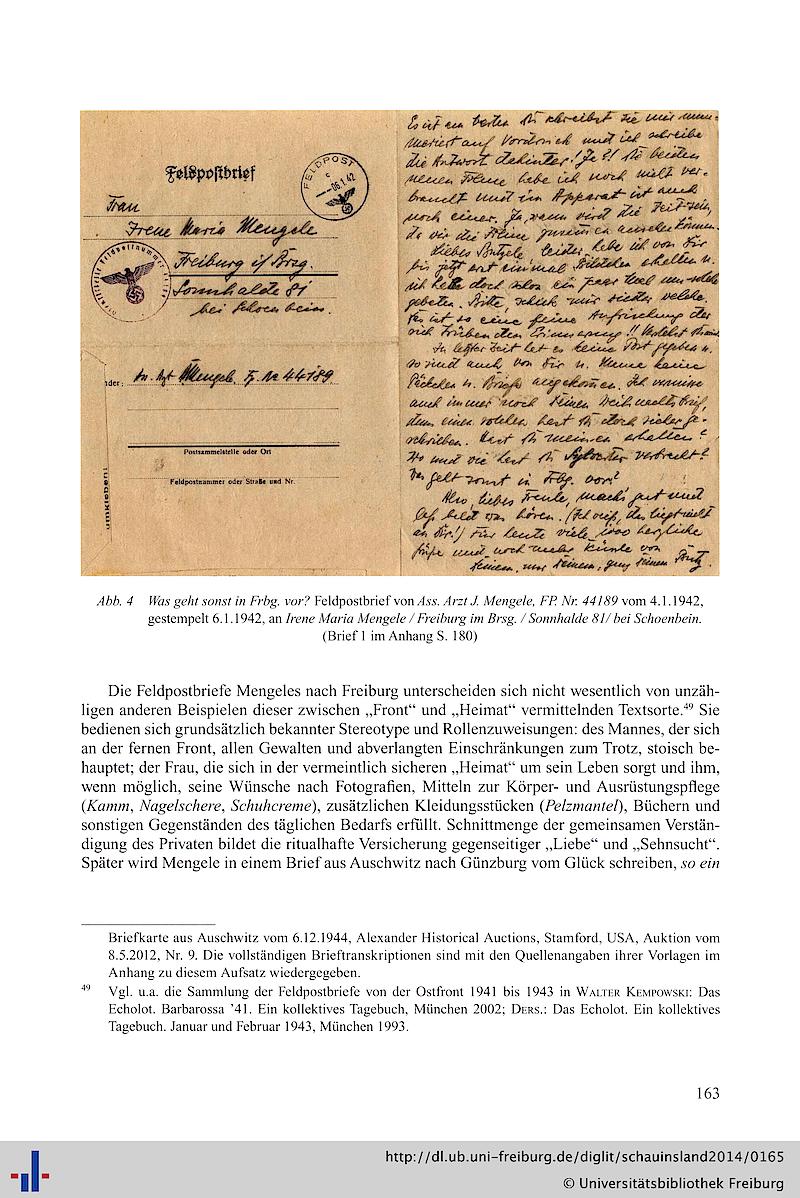 Feldpostbrief
FELDPOST
c
–06.1.42
Frau
Irene Maria Mengele
Freiburg i/Brsg.
Sonnhalde 81
bei Schoenbein.
nder: Mengele, Fp. Nr 44189
Postsammelstelle oder Ort
Feldpostnummer oder Straße und Nr.
umkleben!
Es ist am besten Du schreibst sie mir num-
meriert auf Vordruck und ich schreibe
die Antwort dahinter! Ja?! Die beiden
neuen Filme habe ich noch nicht ver-
braucht und im Apparat ist auch
noch einer. Ja, wann wird die Zeit sein,
da wir die Filme zusammen ansehen können.
Liebes Butzele, leider habe ich von Dir
bis jetzt erst einmal Bildchen erhalten u.
ich hatte doch schon ein paar Mal um solche
gebeten. Bitte, schick mir wieder welche.
Es ist so eine feine Auffrischung der
sich trübenden Erinnerung!!
In letzter Zeit hat es keine Post gegeben u.
so sind auch von Dir u. Mama keine
Päckchen u. Briefe angekommen. Ich vermisse
auch immer noch Deinen Weihnachtsbrief,
denn einen solchen hast Du doch sicher ge-
schrieben. Hast Du meinen erhalten?
Wo und wie hast Du Sylvester verbracht?
Was geht sonst in Frbg. vor?
Also, liebes Freule, mach's gut und
laß bald was hören. (Ich weiß, das liegt nicht
an Dir!) Für heute viele, 1000 herzliche
Grüße und noch mehr Küsse von
Deinem, nur Deinem, ganz Deinem Butz.
Abb. 4 Was geht sonst in Frbg. vor? Feldpostbrief von Ass. Arzt J. Mengele, FP. Nr. 44189 vom 4.1.1942,
gestempelt 6.1.1942, an Irene Maria Mengele / Freiburg im Brsg. / Sonnhalde 81/ bei Schoenbein.
(Brief 1 im Anhang S. 180)
Die Feldpostbriefe Mengeles nach Freiburg unterscheiden sich nicht wesentlich von unzäh-
ligen anderen Beispielen dieser zwischen „Front“ und „Heimat“ vermittelnden Textsorte.49 Sie
bedienen sich grundsätzlich bekannter Stereotype und Rollenzuweisungen: des Mannes, der sich
an der fernen Front, allen Gewalten und abverlangten Einschränkungen zum Trotz, stoisch be-
hauptet; der Frau, die sich in der vermeintlich sicheren „Heimat“ um sein Leben sorgt und ihm,
wenn möglich, seine Wünsche nach Fotografien, Mitteln zur Körper- und Ausrüstungspflege
(Kamm, Nagelschere, Schuhcreme), zusätzlichen Kleidungsstücken (Pelzmantel), Büchern und
sonstigen Gegenständen des täglichen Bedarfs erfüllt. Schnittmenge der gemeinsamen Verstän-
digung des Privaten bildet die ritualhafte Versicherung gegenseitiger „Liebe“ und „Sehnsucht“.
Später wird Mengele in einem Brief aus Auschwitz nach Günzburg vom Glück schreiben, so ein
Briefkarte aus Auschwitz vom 6.12.1944, Alexander Historical Auctions, Stamford, USA, Auktion vom
8.5.2012, Nr. 9. Die vollständigen Brieftranskriptionen sind mit den Quellenangaben ihrer Vorlagen im
Anhang zu diesem Aufsatz wiedergegeben.
49 Vgl. u.a. die Sammlung der Feldpostbriefe von der Ostfront 1941 bis 1943 in WALTER KEMPOWSKI: Das
Echolot. Barbarossa ’41. Ein kollektives Tagebuch, München 2002; DERS.: Das Echolot. Ein kollektives
Tagebuch. Januar und Februar 1943, München 1993.
163
http://dl.ub.uni-freiburg.de/diglit/schauinsland2014/0165
© Universitätsbibliothek Freiburg